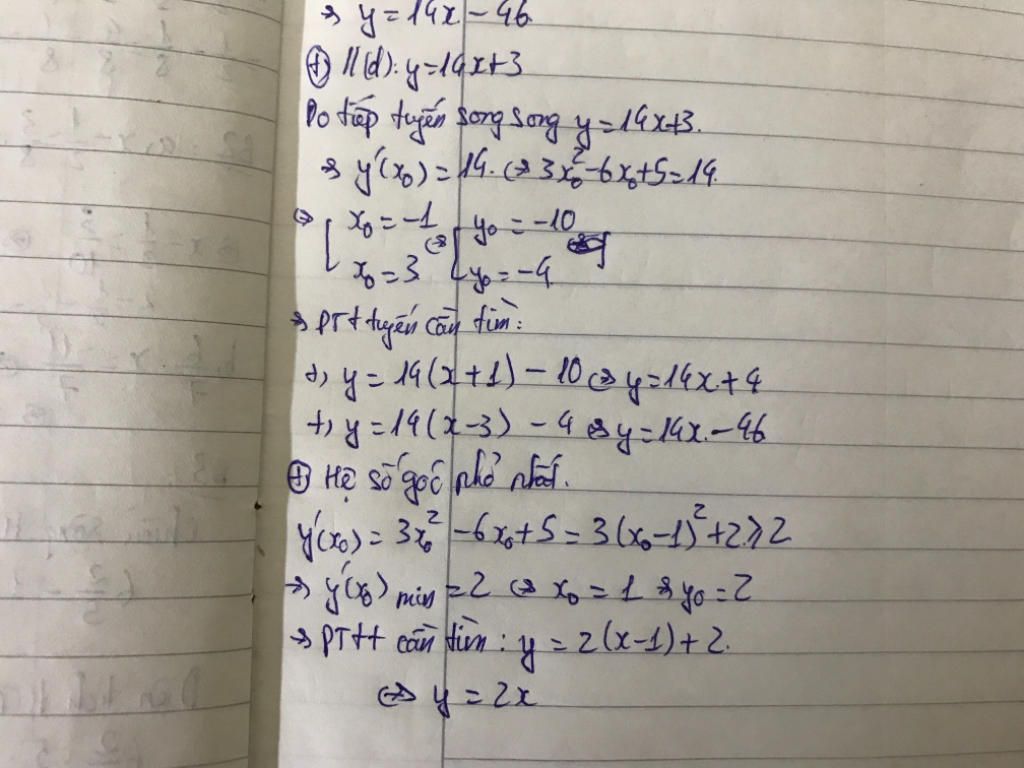 ⇒ y = 14x - 46
⊕ //(d): y = 14x+3
Do tiếp tuyến song song y = 14x+3.
⇒ y'(x₀) = 14. ⇔ 3x₀² - 6x₀ + 5 = 14
⇔ [ x₀ = -1 ⇔ [ y₀ = -10
x₀ = 3 y₀ = -4
⇒ PTt tuyến cần tìm:
+, y = 14(x+1) - 10 ⇔ y = 14x + 4
+, y = 14(x-3) - 4 ⇔ y = 14x - 46
⊕ Hệ số góc nhỏ nhất.
y'(x₀) = 3x₀² - 6x₀ + 5 = 3(x₀-1)² + 2 ⩾ 2
⇒ y'(x₀) min = 2 ⇔ x₀ = 1 ⇒ y₀ = 2
⇒ PTtt cần tìm: y = 2(x-1) + 2.
⇔ y = 2x